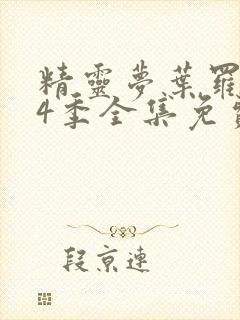 精靈夢葉羅
4季全集免
段京連